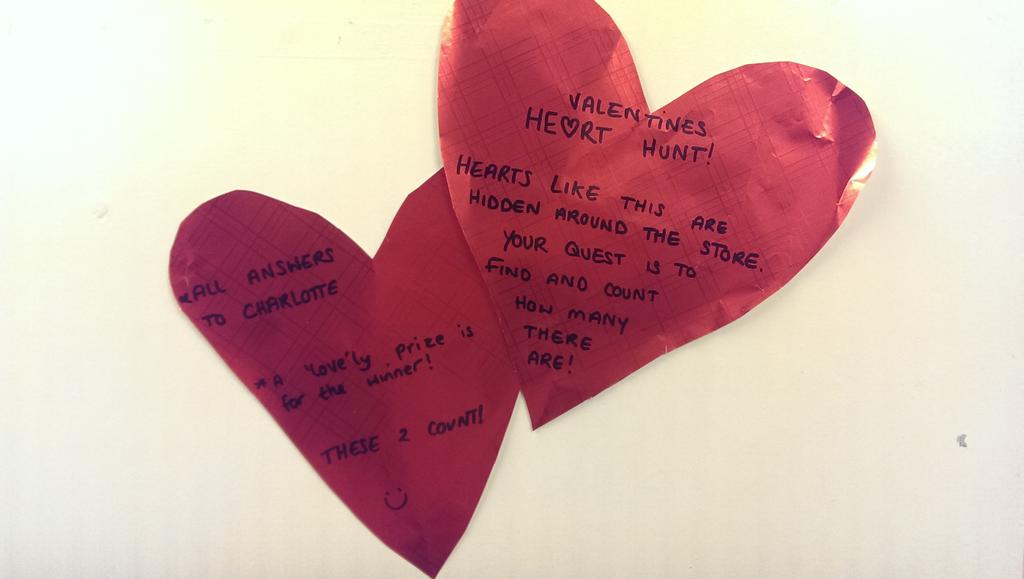 VALENTINES
HE♡RT HUNT!
HEARTS LIKE THIS ARE
HIDDEN AROUND THE STORE.
YOUR QUEST IS TO
FIND AND COUNT
HOW MANY
THERE
ARE!
*ALL ANSWERS
TO CHARLOTTE
** A 'love'ly prize is
for the winner!
THESE 2 COUNT!